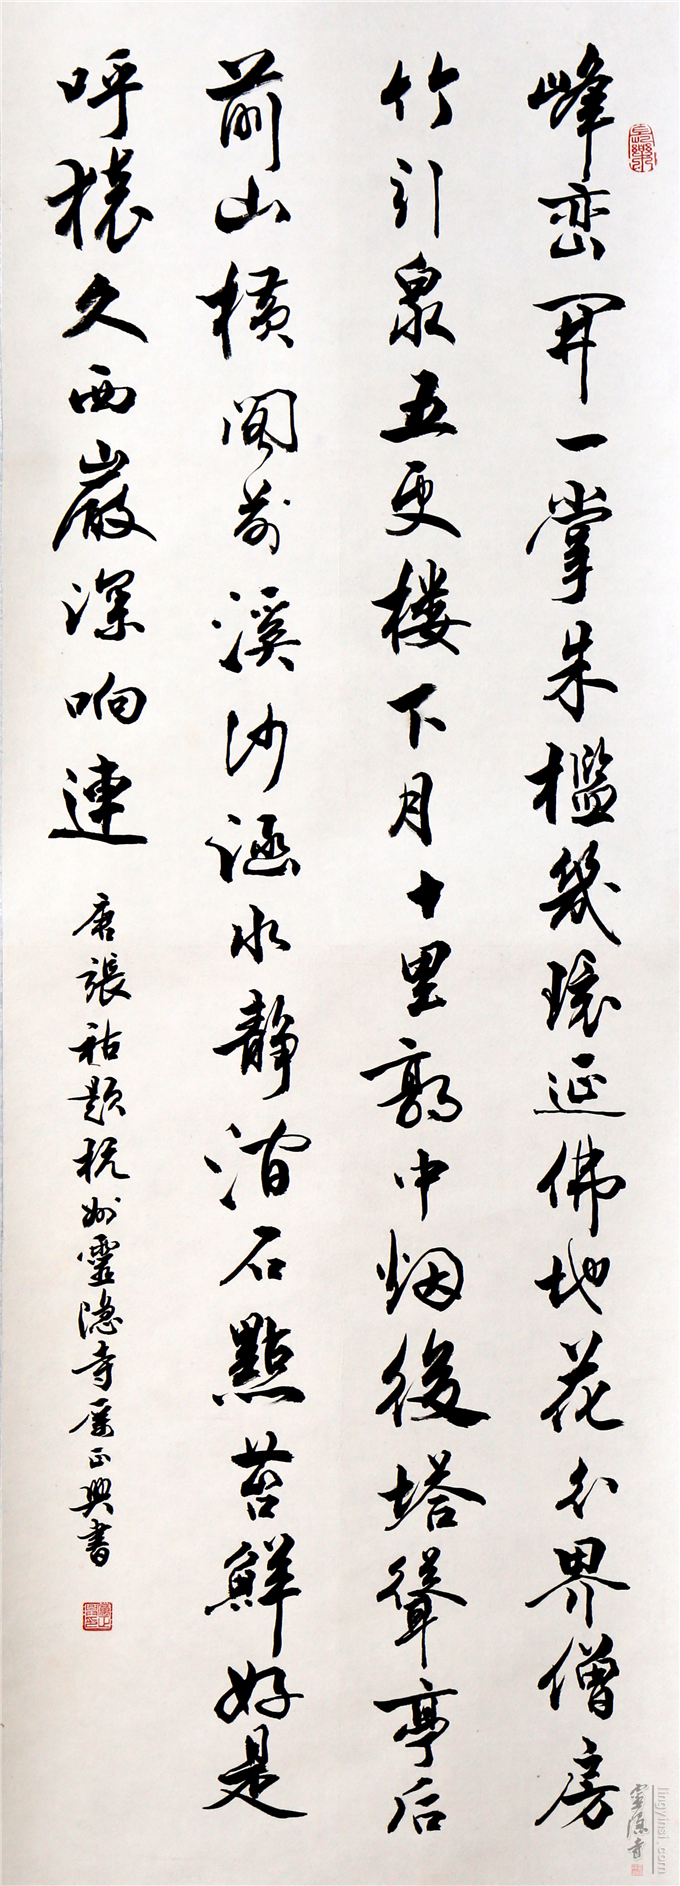 峰峦開一掌朱檻幾環延佛地花分界僧房
竹引泉五更楼下月十里郭中烟後塔聳亭后
前山横閣前溪沙涵水靜澗石點苔鮮好是
呼猿久西巖深响連
唐張祜题杭州靈隐寺 正興書
靈隱寺
lingyinsi.com